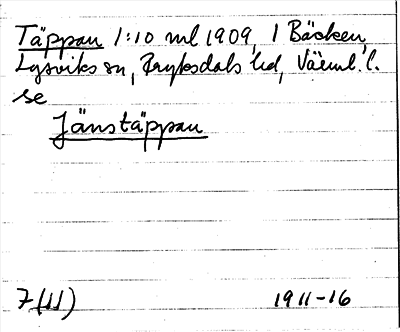 Täppan 1:10 ml 1909, 1 Bäcken,
Lysviks sn, Fryksdals hd, Värml. l.
se
Jänstäppan
7(11) 1911-16